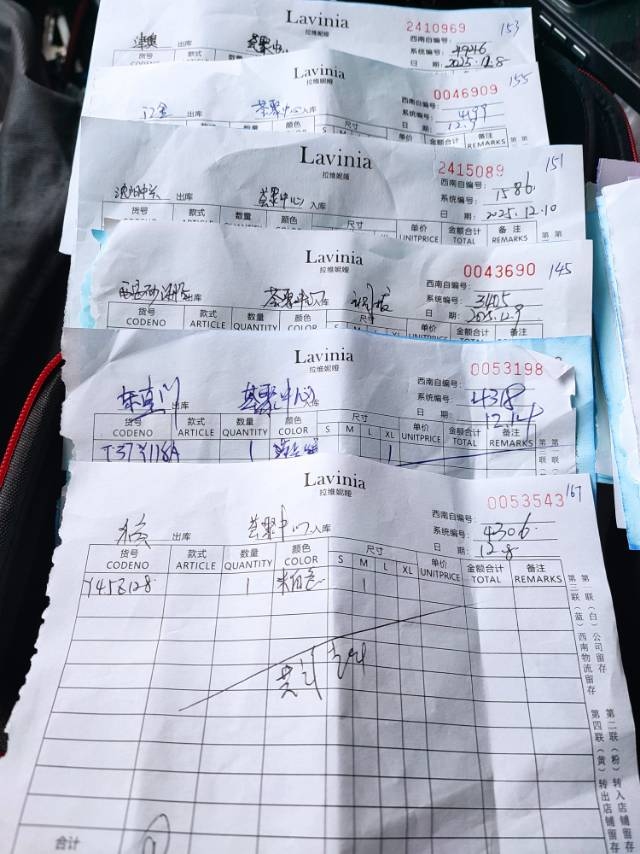 Lavinia 2410969 153
拉维妮娅 西南自编号:
出库 荟聚中心 系统编号: 4946
货号 款式 数量 颜色 日 期: 2025.12.8
Lavinia 0046909 155
拉维妮娅 西南自编号:
出库 荟聚中心入库 系统编号: 4199
日 期: 12.9
货号 款式 数量 颜色 尺寸 单价 金额合计 备注
UNITPRICE TOTAL REMARKS
Lavinia 2415089 151
拉维妮娅 西南自编号:
出库 荟聚中心 入库 系统编号: 1586
日 期: 2025.12.10
货号 款式 数量 颜色 尺寸 单价 金额合计 备注
CODENO ARTICLE QUANTITY COLOR UNITPRICE TOTAL REMARKS
Lavinia 0043690 145
拉维妮娅 西南自编号:
出库 荟聚中心入库 系统编号: 3405
日 期: 2025.12.9
货号 款式 数量 颜色 尺寸 单价 金额合计 备注
CODENO ARTICLE QUANTITY COLOR S M L XL UNITPRICE TOTAL REMARKS
Lavinia 0053198
拉维妮娅 西南自编号:
出库 荟聚中心入库 系统编号: 4318
日 期: 12.14
货号 款式 数量 颜色 尺寸 单价 金额合计 备注
CODENO ARTICLE QUANTITY COLOR S M L XL UNITPRICE TOTAL REMARKS
1 1
Lavinia 0053543 167
拉维妮娅 西南自编号:
出库 荟聚中心入库 系统编号: 4306
日 期: 12.8
货号 款式 数量 颜色 尺寸 单价 金额合计 备注
CODENO ARTICLE QUANTITY COLOR S M L XL UNITPRICE TOTAL REMARKS
Y45Z128 1 米白色 1
共计
合计
第一联(白)公司留存
第三联(蓝)西南物流留存
第二联(粉)转入店铺留存
第四联(黄)转出店铺留存